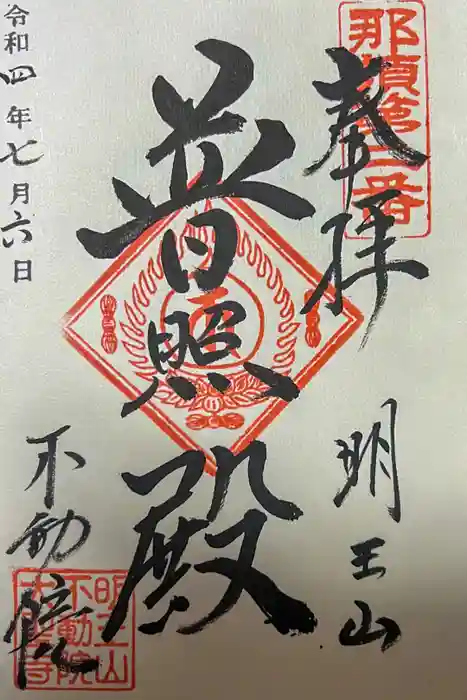 那須第二番
奉拝
明王山
普照殿
令和四年七月六日
不動院
明王山
不動院